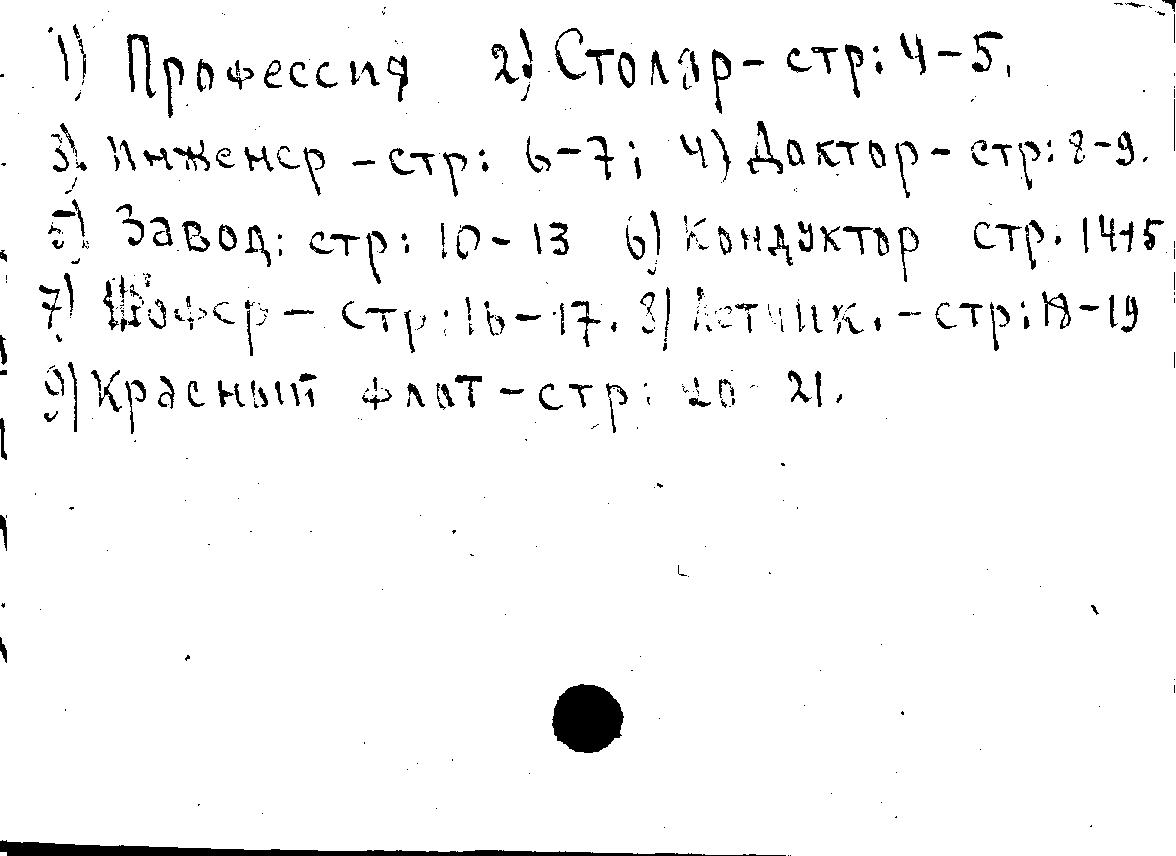 1) Профессия 2) Столяр - стр: 4-5.
3). Инженер - стр: 6-7; 4) Доктор - стр: 8-9.
5) Завод: стр: 10-13 6) Кондуктор стр. 14-15
7) Шофер - стр: 16-17. 8) Летчик. - стр: 18-19
9) Красный флот - стр: 20-21.